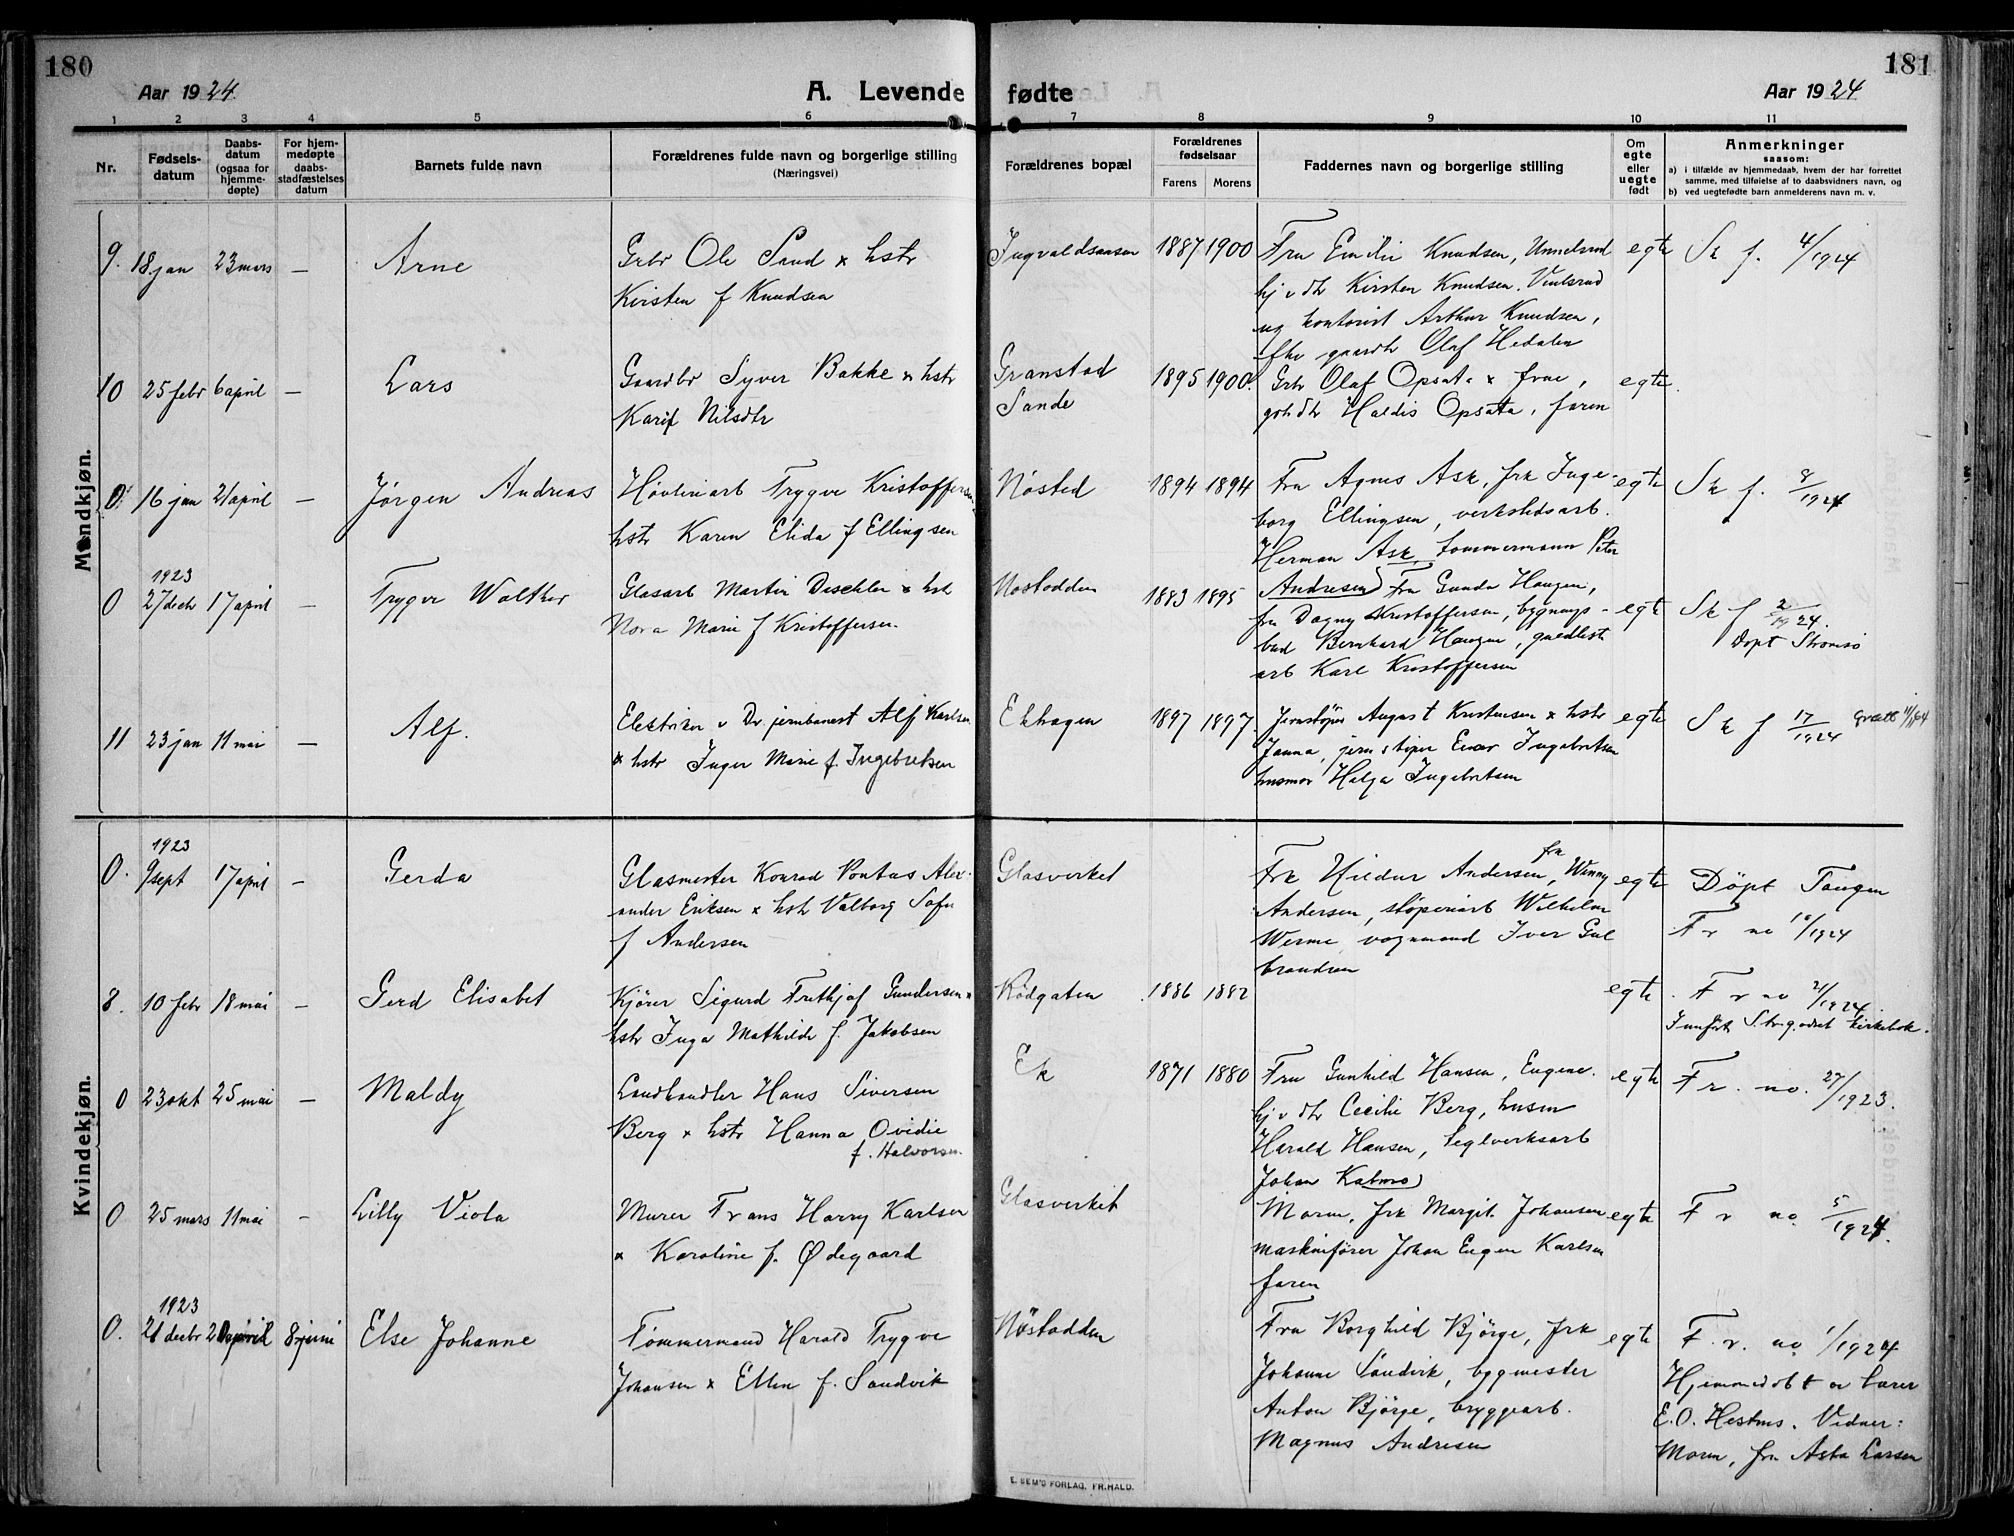 180
181
Aar 1924
A. Levende
fødte
Aar 1924
1 2 3 4 5 6
7 8 9 10 11
Nr.
Fødsels-
datum
Daabs-
datum
(ogsaa for
hjemme-
døpte)
For hjem-
medøpte
daabs-
stadfæstelses
datum
Barnets fulde navn
Forældrenes fulde navn og borgerlige stilling
(Næringsvei)
Forældrenes bopæl
Forældrenes
fødselsaar
Farens Morens
Faddernes navn og borgerlige stilling
Om
egte
eller
uegte
født
Anmerkninger
saasom:
a) i tilfælde av hjemmedaab, hvem der har forrettet
samme, med tilføielse af to daabsvidners navn, og
b) ved uegtefødte barn anmelderens navn m. v.
Mandkjøn.
9. 18 jan 23 mars — Arne
Grbr Ole Sand x hstr
Kirsten f Knudsen
Ingvaldsaasen
1887 1900
Fru Emilie Knudsen, Unnelsrud
hj v dtr Kirsten Knudsen.
ug kontorist Arthur Knudsen,
gaardbr Olaf Hedalen
egte
Sk f. 4/1924
10 25 febr 6 april — Lars
Gaardbr Syver Bakke x hstr
Kari f Nilsdtr
Granstad
Sande
1895 1900.
Grbr Olaf Opsata x frue,
Haldis Opsata, faren
egte.
0 16 jan 21 april — Jørgen Andreas
Høvleriarb Trygve Kristoffersen
hstr Karen Elida f Ellingsen
Nøsted
1894 1894
Fru Agnes Ask, frk Inge-
borg Ellingsen, verkstedsarb.
Herman Ask, tømmermann Peter
Andresen
egte
Sk f. 8/1924
0 1923
27 decbr 17 april — Trygve Walther
Glasarb Martin Dischler x hstr
Nora Marie f Kristoffersen.
Nøstodden
1883 1895
Fru Gunda Haugen,
fru Dagny Kristoffersen, bygnings-
bud Bernhard Haugen, guldlist
arb Karl Kristoffersen
egte
Sk f 2/1924.
Døpt Strømsø
11 23 jan 11 mai — Alf.
Elektriker v Dr. jernbanest Alf Karlsen
x hstr Inger Marie f Ingebretsen
Ekhagen
1897 1897.
Jernstøper August Kristensen x hstr
Janna, jernstøper Einar Ingebretsen
husmor Helga Ingebretsen
egte
Sk f 17/1924
Kvindekjøn.
0. 1923
9 sept 17 april — Gerda
Glasmester Konrad Pontus Alex-
ander Eriksen x hstr Valborg Sofie
f Andersen
Glasverket
Frk Hildur Andersen, fru Winny
Andersen, støperiarb Wilhelm
Werme, vognmand Iver Gul
brandsen
egte
Døpt Tangen
Fr no 10/1924
8. 10 febr 18 mai — Gerd Elisabet
Kjører Sigurd Frithjof Gundersen x
hstr Inga Mathilde f. Jakobsen
Rødgaten
1886 1882
egte
Fr no 21/1924.
Innført Str.godset kirkebok.
0 23 okt 25 mai — Maldy
Landhandler Hans Siversen
Berg x hstr Hanna Ovidie
f. Halvorsen.
Ek
1871 1880
Fru Gunhild Hansen, Eugene.
hj v dtr Cecilie Berg, husm
Harald Hansen, teglverksarb
Johan Kalmo
egte
Fr. no. 27/1923.
0 25 mars 11 mai — Lilly Viola
Murer Frans Harry Karlsen
x Karoline f. Ødegaard
Glasverket
Moren, frk Margit Johansen
maskinfører Johan Eugen Karlsen
faren
egte
Fr no. 5/1924.
0. 1923
21 decbr 20 april 8 juni Else Johanne
Tømmermand Harald Trygve
Johansen x Ellen f. Sandvik
Nøstodden
Fru Borghild Bjørge, frk
Johanne Sandvik, bygmester
Anton Bjørge, bryggearb.
Magnus Andresen
egte
F. r. no 1/1924
Hjemmedøbt av lærer
E. O. Hestnes. Vidner:
Moren, fru Asta Larsen
E. SEM'S FORLAG, FR.HALD.